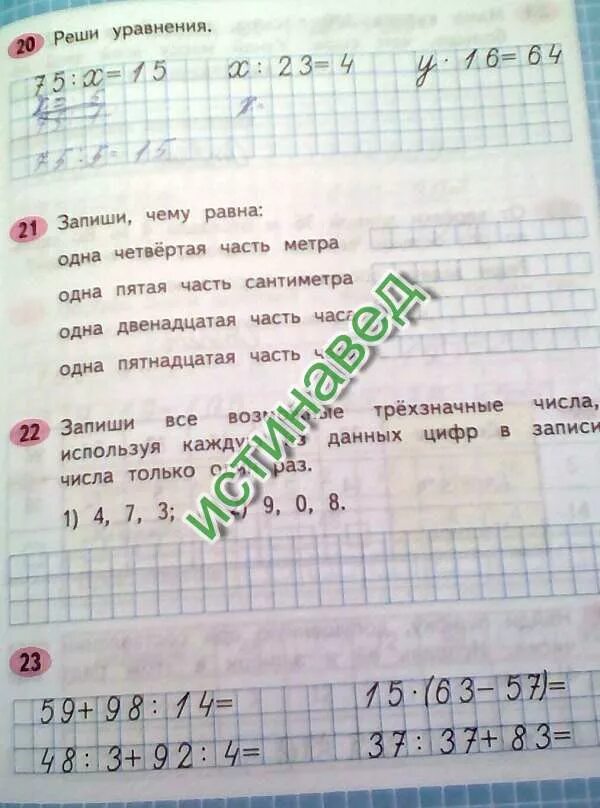 20 Реши уравнения.
75 : x = 15 x : 23 = 4 y · 16 = 64
75 : 5 = 15
21 Запиши, чему равна:
одна четвёртая часть метра
одна пятая часть сантиметра
одна двенадцатая часть часа
одна пятнадцатая часть
22 Запиши все трёхзначные числа,
используя данных цифр в записи
числа только раз.
1) 4, 7, 3; 9, 0, 8.
23
59 + 98 : 14 = 15 · (63 − 57) =
48 : 3 + 92 : 4 = 37 : 37 + 83 =
истинавед